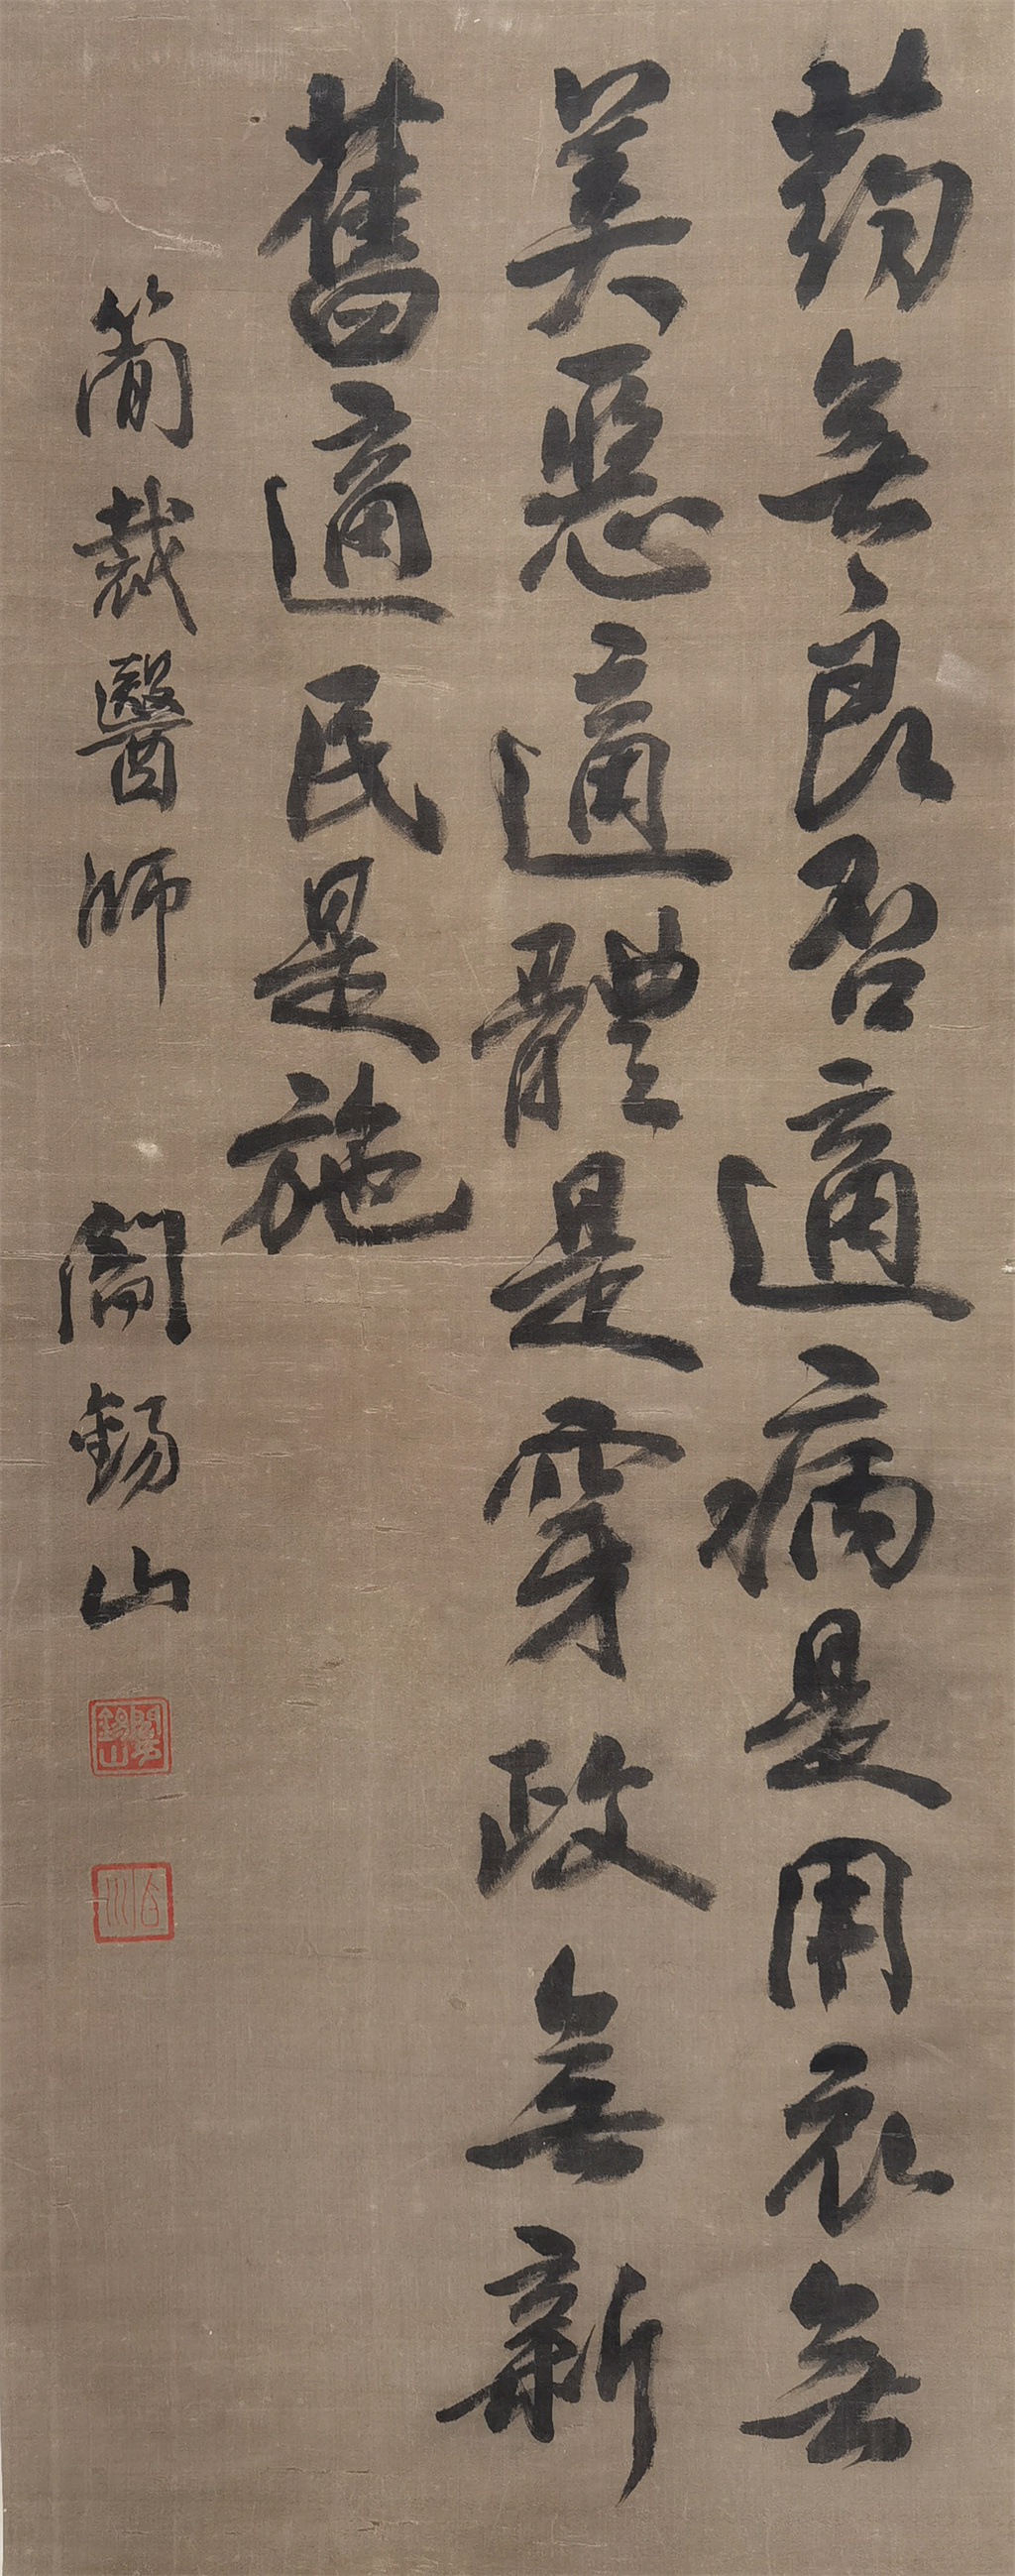 药無良否適病是用衣無
美惡適體是穿政無新
舊適民是施
簡裁醫師 閻錫山
閻錫山
百川